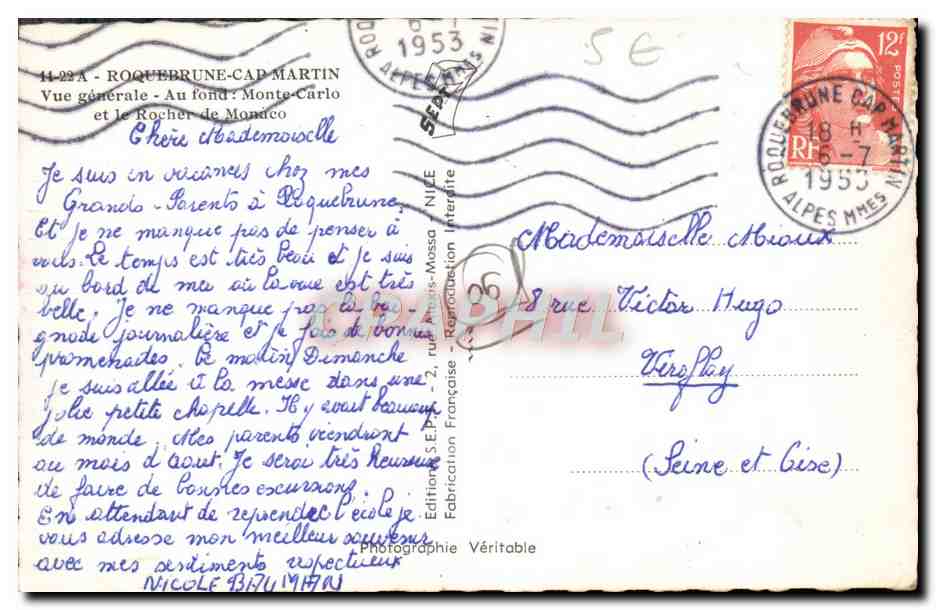 11-22 A - ROQUEBRUNE-CAP MARTIN
Vue générale - Au fond : Monte-Carlo
et le Rocher de Monaco
Chère Mademoiselle
Je suis en vacances chez mes
Grands-Parents à Roquebrune.
Et je ne manque pas de penser à
vous. Le temps est très beau et je suis
au bord de mer où la vue est très
belle. Je ne manque pas la bai-
gnade journalière et je fais de bonnes
promenades. Ce matin, Dimanche
je suis allée à la messe dans une
jolie petite chapelle. Il y avait beaucoup
de monde. Mes parents viendront
au mois d'août. Je serai très heureuse
de faire de bonnes excursions.
En attendant de reprendre l'école je
vous adresse mon meilleur souvenir
avec mes sentiments respectueux
NICOLE
Editions S.E.P.T. - 2, rue Mossa - NICE
Fabrication Française - Reproduction Interdite
SEPT
06
CPAPHIL
Photographie Véritable
1953
ROQUEBRUNE CAP MARTIN
ALPES MMES
5€
12F
POSTES
RF
ROQUEBRUNE CAP MARTIN
18 H
6-7
1953
ALPES MMES
Mademoiselle Mioux
8 rue Victor Hugo
Viroflay
(Seine et Oise)